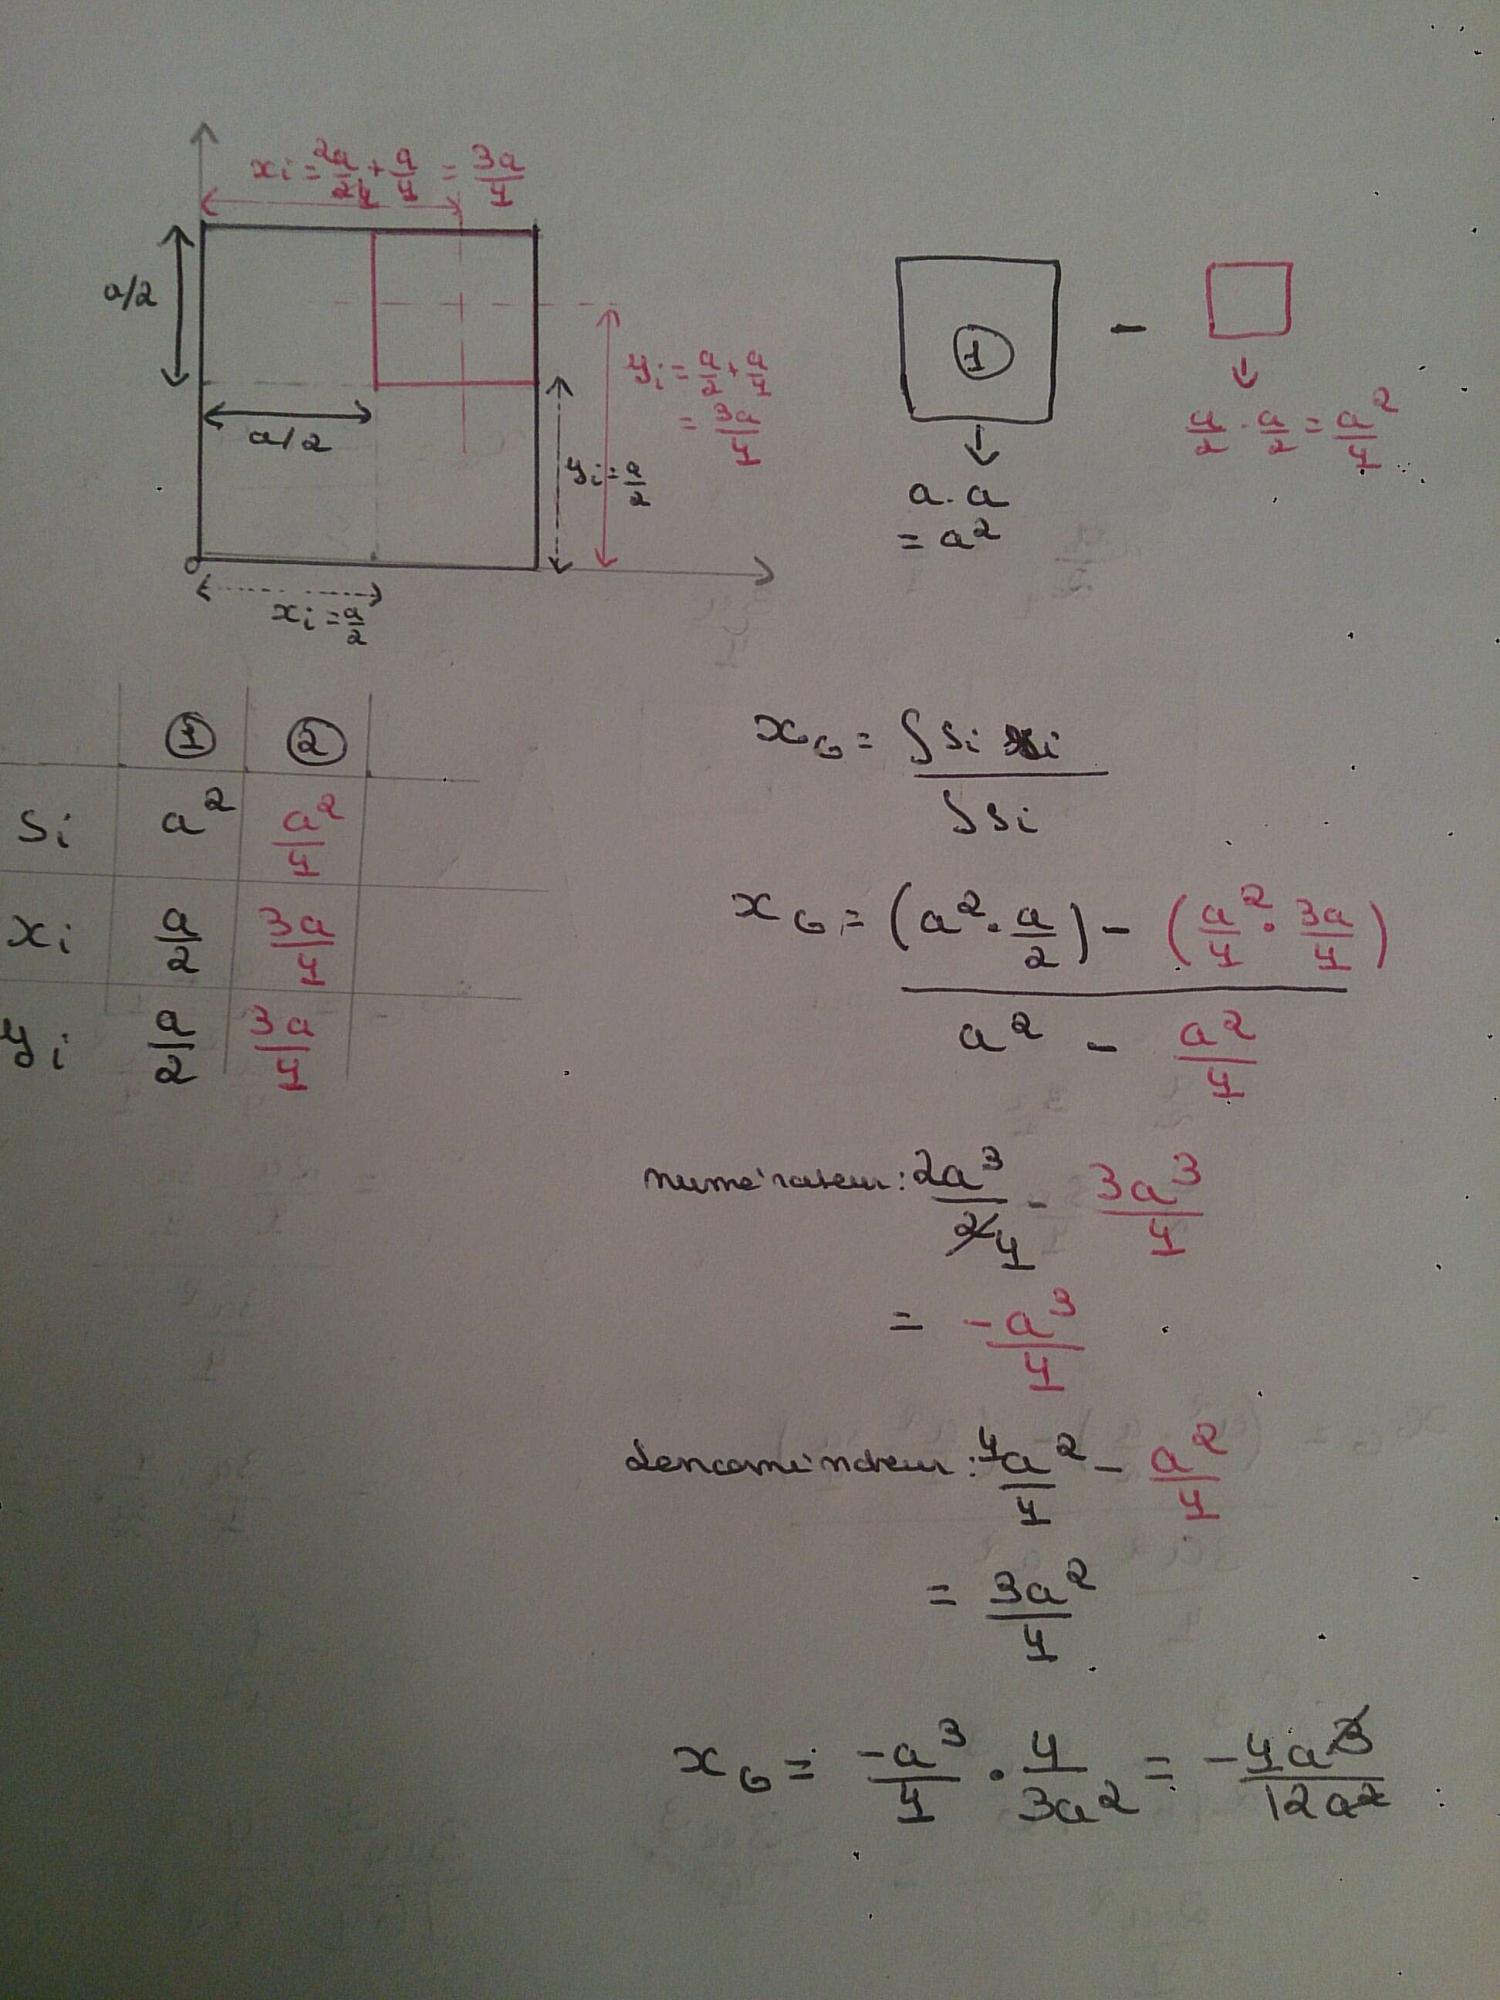 xi = 2a/24 + a/4 = 3a/4
a/2
a/2
yi = a/2 + a/4
= 3a/4
yi = a/2
o
xi = a/2
1 -
a/2 . a/2 = a²/4
a . a
= a²
1 2
Si a² a²/4
xi a/2 3a/4
yi a/2 3a/4
xG = ∫Si xi / ∫Si
xG = (a² . a/2) - (a²/4 . 3a/4) / a² - a²/4
numérateur : 2a³/4 - 3a³/4
= -a³/4
denominateur : 4a²/4 - a²/4
= 3a²/4
xG = -a³/4 . 4/3a² = -4a³/12a²